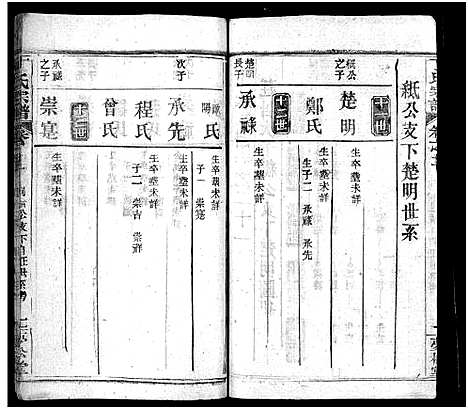 氏宗譜
紙公支下楚明世系
十一世
紙公之子
楚明
生卒塟未詳
鄭氏
生子二 承祿 承先
十二世
楚明長子
承祿
生卒塟未詳
氏
子一 崇寔
次子
承先
生卒塟未詳
程氏
生卒塟未詳
曾氏
子二 崇吉 崇祥
十三世
承祿之子
崇寔
生卒塟未詳
氏宗譜